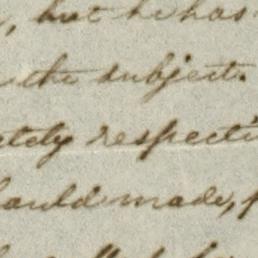 , but he has
the subject.
tely respecti
ould made,